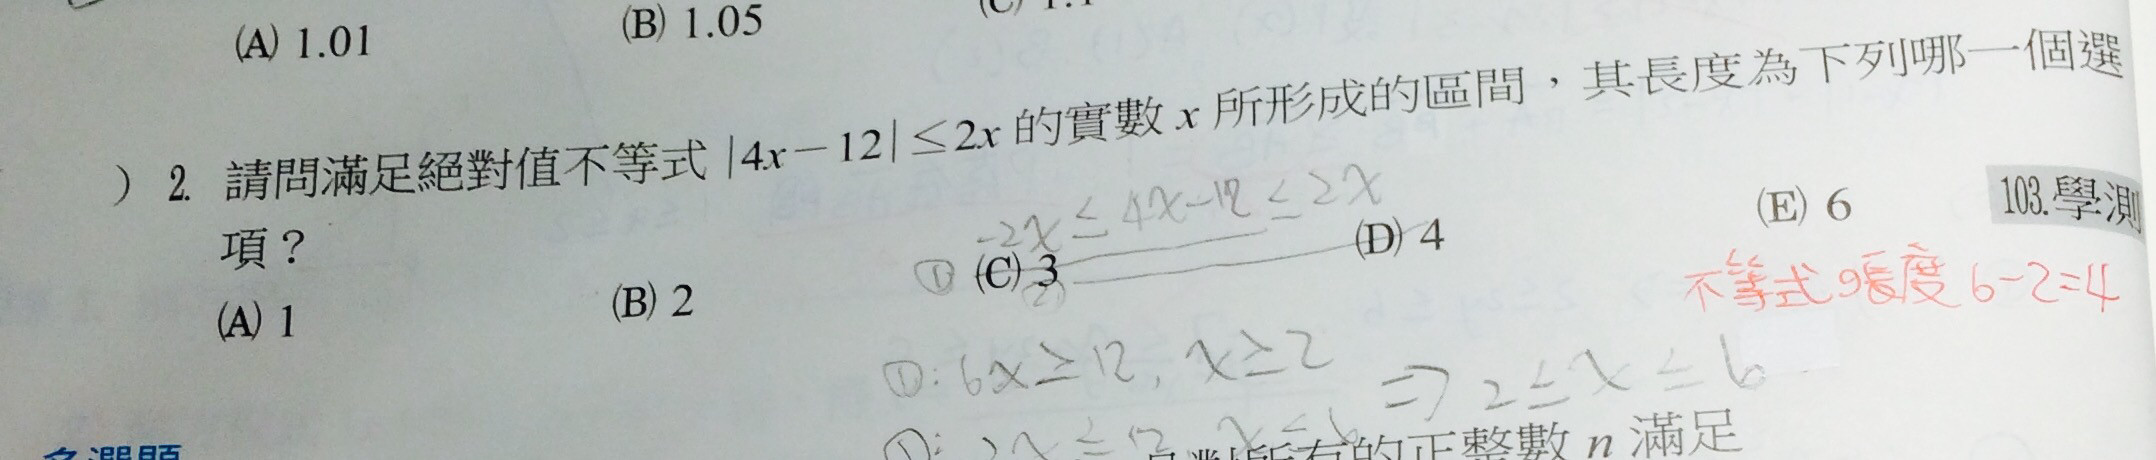 (A) 1.01 (B) 1.05
) 2. 請問滿足絕對值不等式 |4x－12|≤2x 的實數 x 所形成的區間，其長度為下列哪一個選
項？ -2x≤4x-12≤2x 103.學測
(A) 1 (B) 2 ① (C) 3 ② (D) 4 (E) 6
不等式的長度 6-2=4
①: 6x≥12, x≥2 ⇒ 2≤x≤6
2x≤12, x≤6
對所有的正整數 n 滿足
多選題